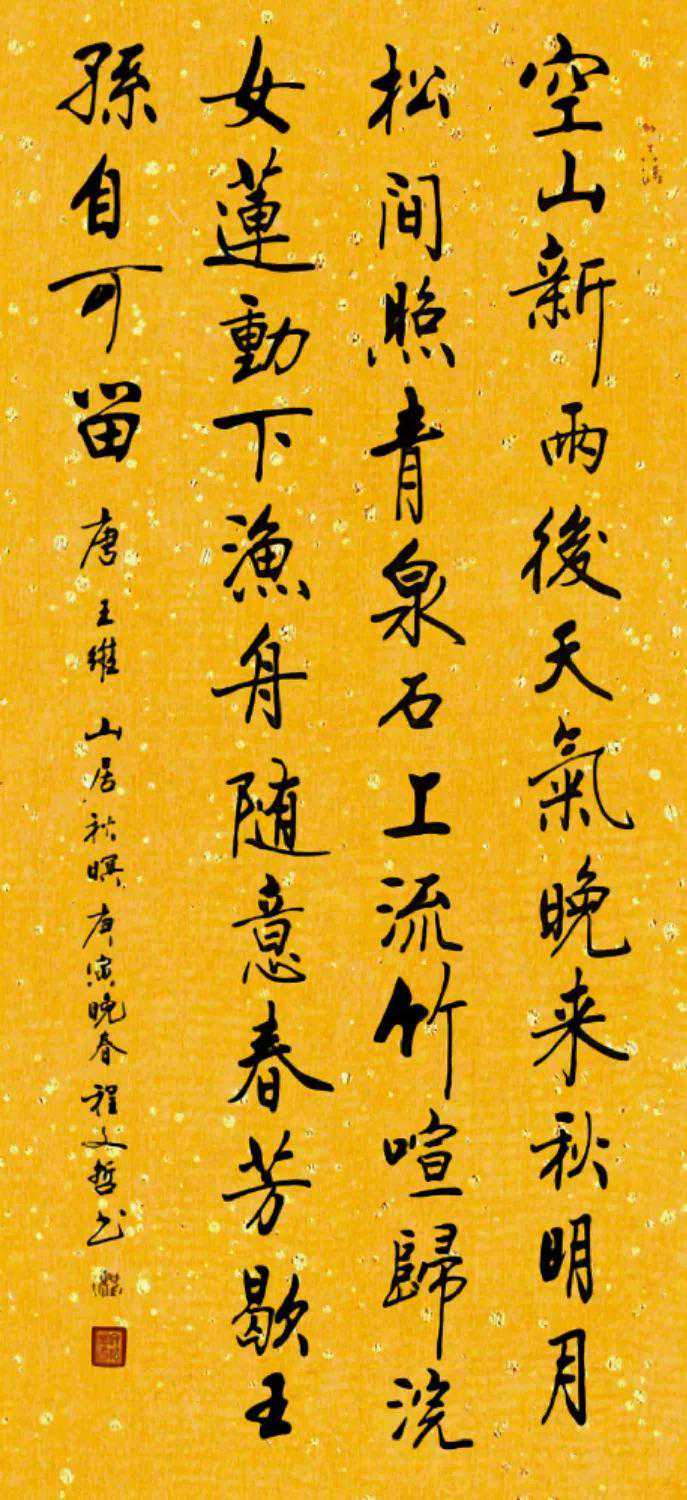 空山新雨後天氣晚来秋明月
松間照青泉石上流竹喧歸浣
女蓮動下漁舟随意春芳歇王
孫自可留
唐王維山居秋暝庚寅晚春程文哲书